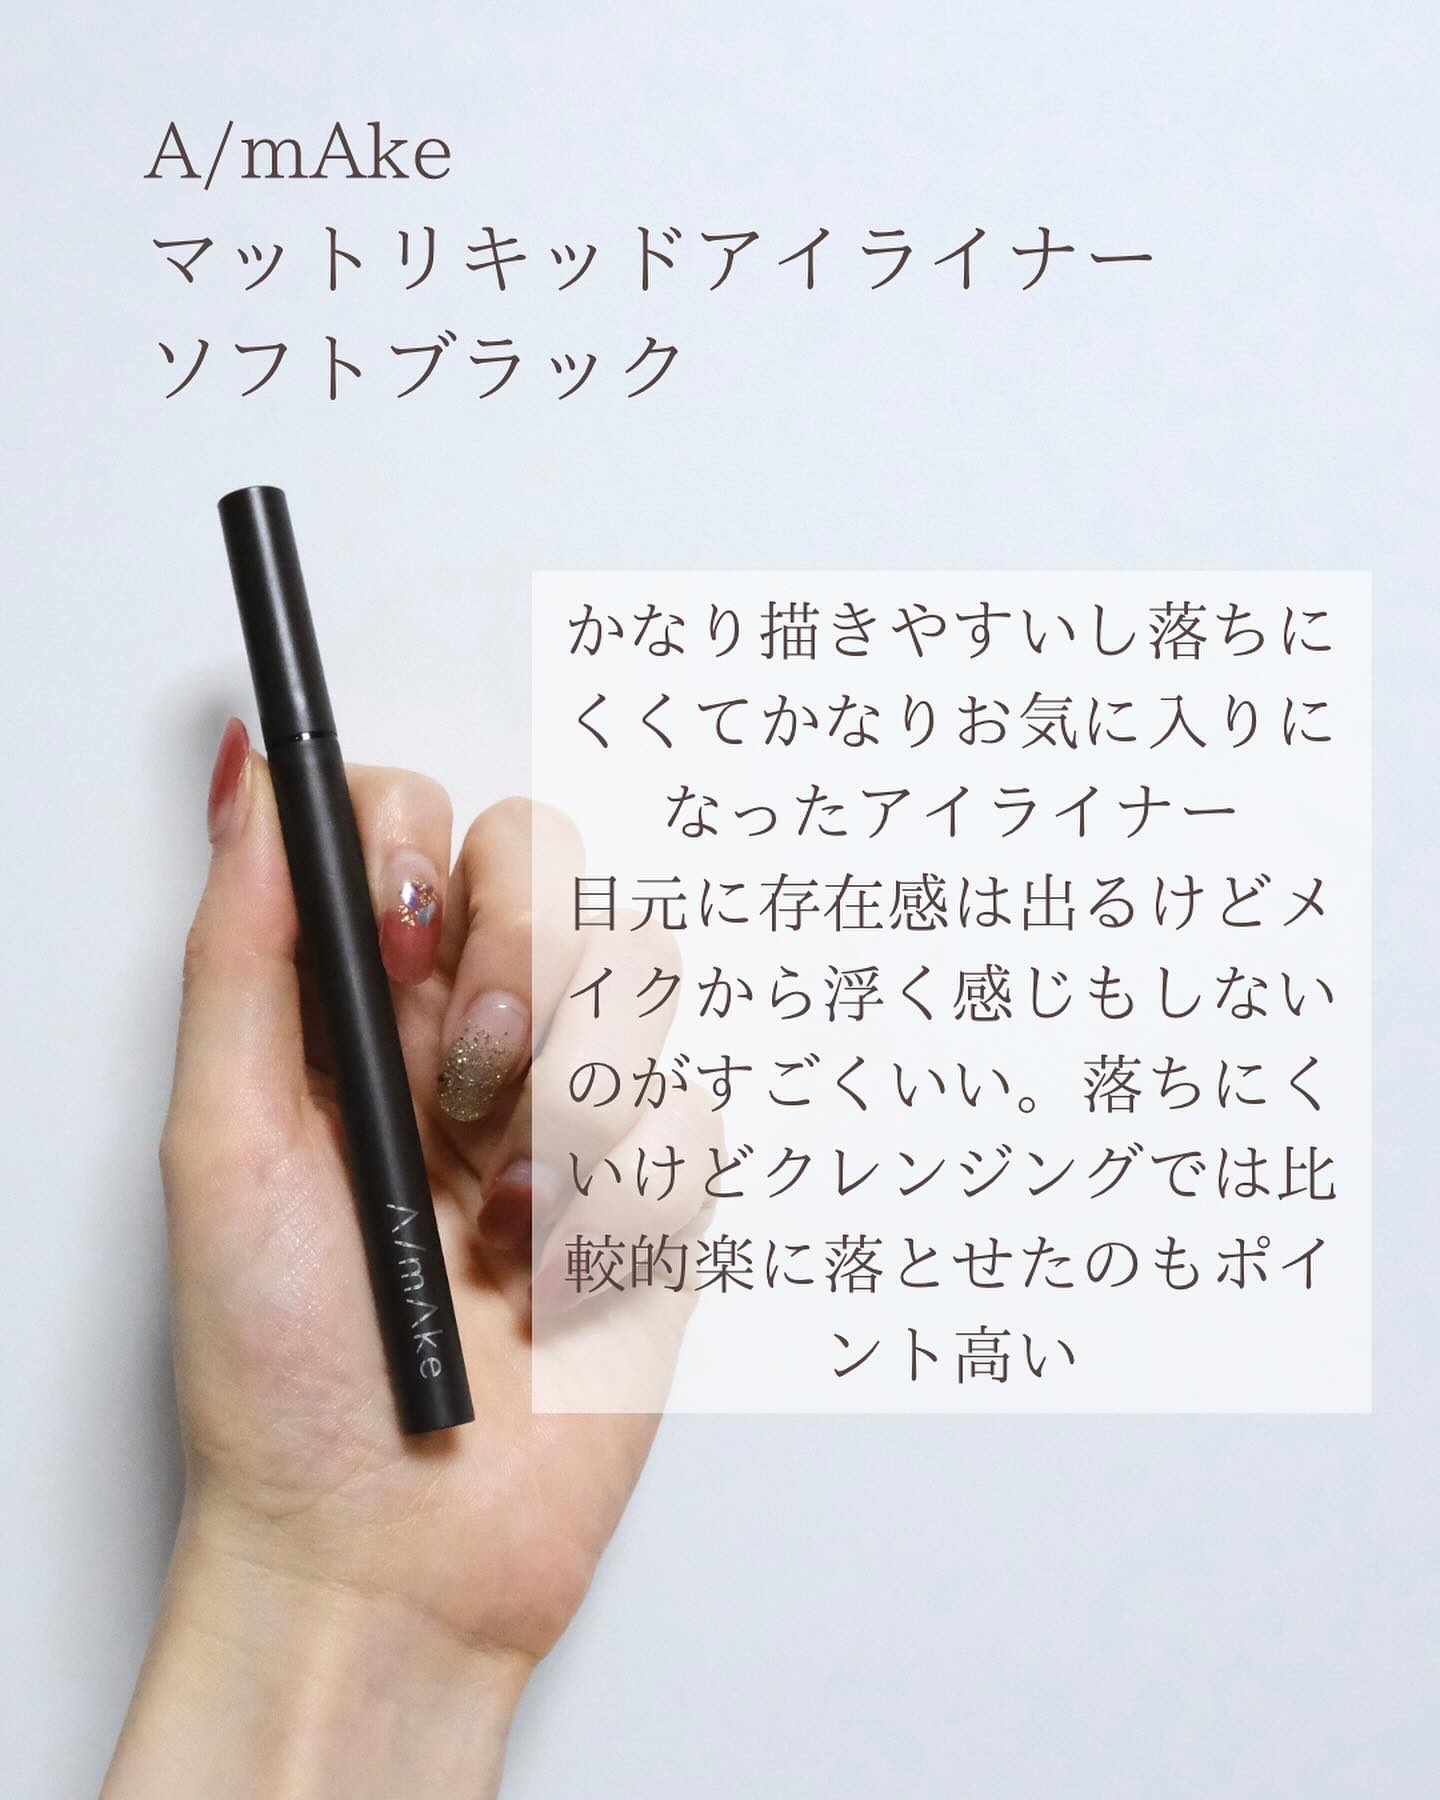 A/mAke
マットリキッドアイライナー
ソフトブラック
かなり描きやすいし落ちに
くくてかなりお気に入りに
なったアイライナー
目元に存在感は出るけどメ
イクから浮く感じもしない
のがすごくいい。落ちにく
いけどクレンジングでは比
較的楽に落とせたのもポイ
ント高い
A/mAke